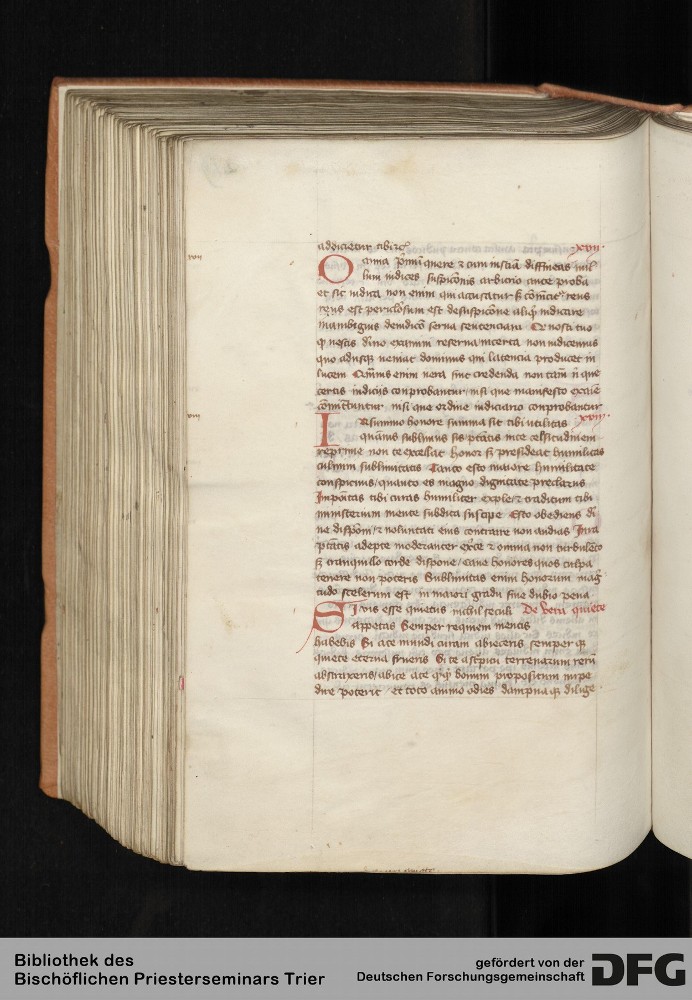 adoicietur tibi rc̄
xxvii·
Omnia p̄mū quere ⁊ cum iusticia diffineas nul
lum iudices suspicionis arbitrio ante proba
et sic iudica non enim qui accusatur s̄ conuict9 reus
reus est periculosum est de suspicione aliq̄ iudicare
in ambiguis dei iudicio serua sententiam Q nosti tuo
q̄ nescis diuino examini reserua incerta non iudicemus
quo adusq̄ ueniat dominus qui latencia producet in
lucem Quamuis enim uera sint credenda non tam̄ n̄ que
certis indiciis conprobantur nisi que manifesto
conuincuntur nisi que ordine iudiciario conprobantur
xxviii·
In summo honore summa sit tibi utilitas
quamuis sublimus sis ptatis in te celsitudinem
reprime non te extollat honor s̄ presideat humilitas
culmini sublimitatis Tanto esto maiore humilitate
conspicuus/ quanto es magno dignitate preclarus
Impositas tibi curas humiliter exple/ ⁊ traditum tibi
ministerium mente subdita suscipe Esto obediens di
ne disposicioni/ ⁊ uoluntati eius contraire non audias Iura
ptatis adepte moderanter exerce ⁊ omnia non turbulēto
s̄ tranquillo corde dispone/ caue honores quos culpa
tenere non poteris Sublimitas enim honorum mag
tudo scelerum est in maiori gradu sine dubio pena
Si uis esse quietus nichil seculi De vera quiete
appetas Semper requiem mentis
habebis Si a te mundi curam abieceris semper q̄
quiete eterna frueris Si te a strepitu terrenarum rerū
abstraxeris/ abice a te q̄q̄ bonum propositum inpe
dire poterit et toto animo odies dampna q̄ dilige
Bibliothek des
Bischöflichen Priesterseminars Trier
gefördert von der
Deutschen Forschungsgemeinschaft
DFG